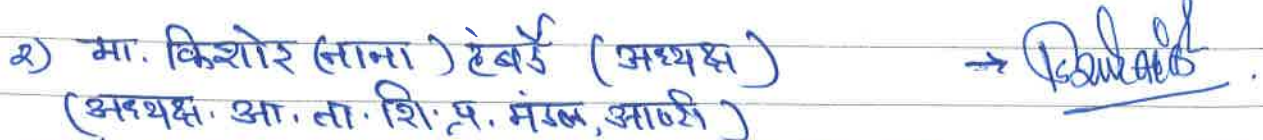 २) मा. किशोर (नाना) हंबर्डे (अध्यक्ष) →
(अध्यक्ष. आ. ता. शि. प्र. मंडळ, आष्टी)